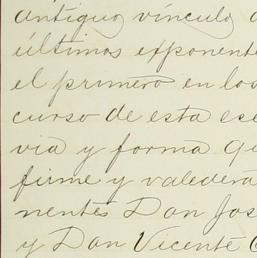 antiguo vínculo
últimos exponente
el primero en los
curso de esta esc
via y forma qu
firme y valedera
nentes Don Jos
y Don Vicente